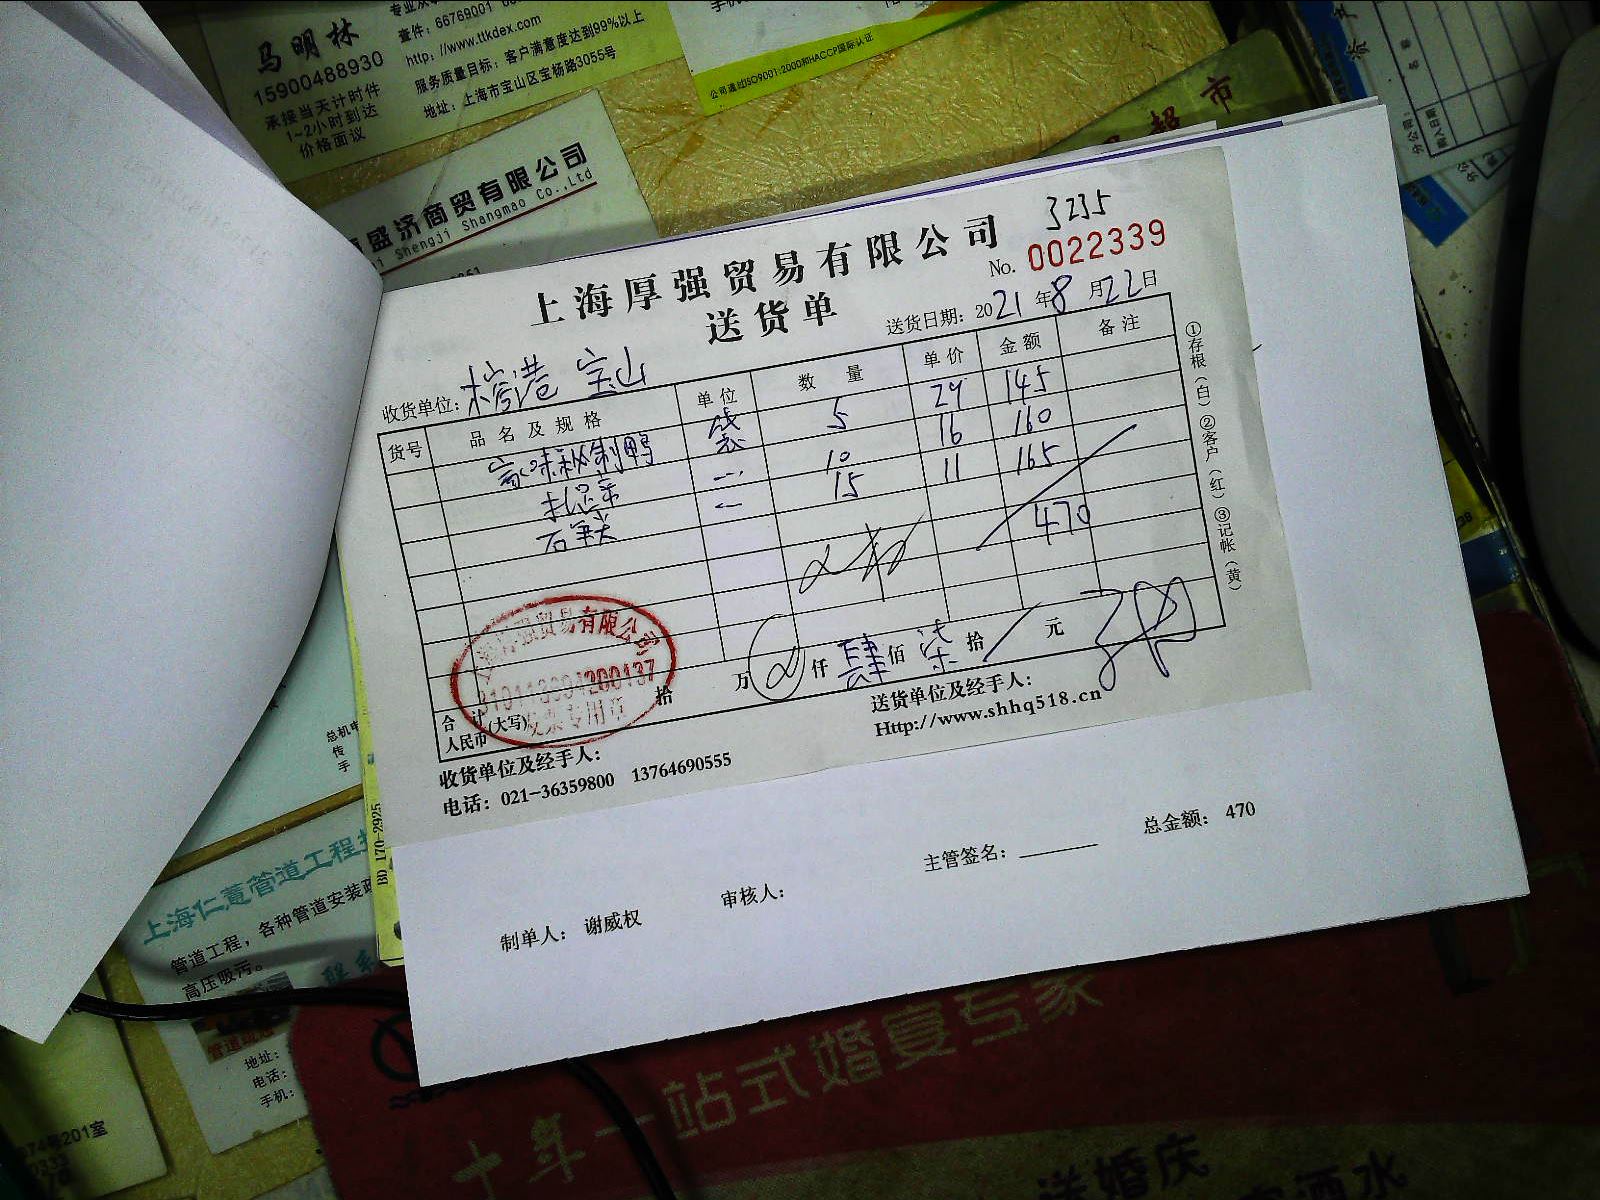 马明林
15900488930
承接当天计时件
1~2小时到达
价格面议
查件: 66769001
http: //www.ttkdex.com
服务质量目标: 客户满意度达到99%以上
地址: 上海市宝山区宝杨路3055号
公司通过ISO9001:2000和HACCP国际认证
超市
盛济商贸有限公司
Shengji Shangmao Co.,Ltd
上海厚强贸易有限公司
3235
No. 0022339
送货单
送货日期: 2021年8月22日
收货单位: 宝山
货号 品名及规格 单位 数量 单价 金额 备注
秘制鸭 袋 5 29 145
10 16 160
15 11 165
470
①存根(白)②客户(红)③记帐(黄)
合计人民币(大写) 拾 万 仟 肆 佰 柒 拾 元
贸易有限公司
发票专用章
收货单位及经手人:
送货单位及经手人:
电话: 021-36359800 13764690555
Http://www.shhq518.cn
制单人: 谢威权
审核人:
主管签名:
总金额: 470
BD 170-2925
上海仁薏管道工程
管道工程, 各种管道安装
高压吸污。
地址:
电话:
手机:
201室
十年一站式婚宴专家
送婚庆
酒水